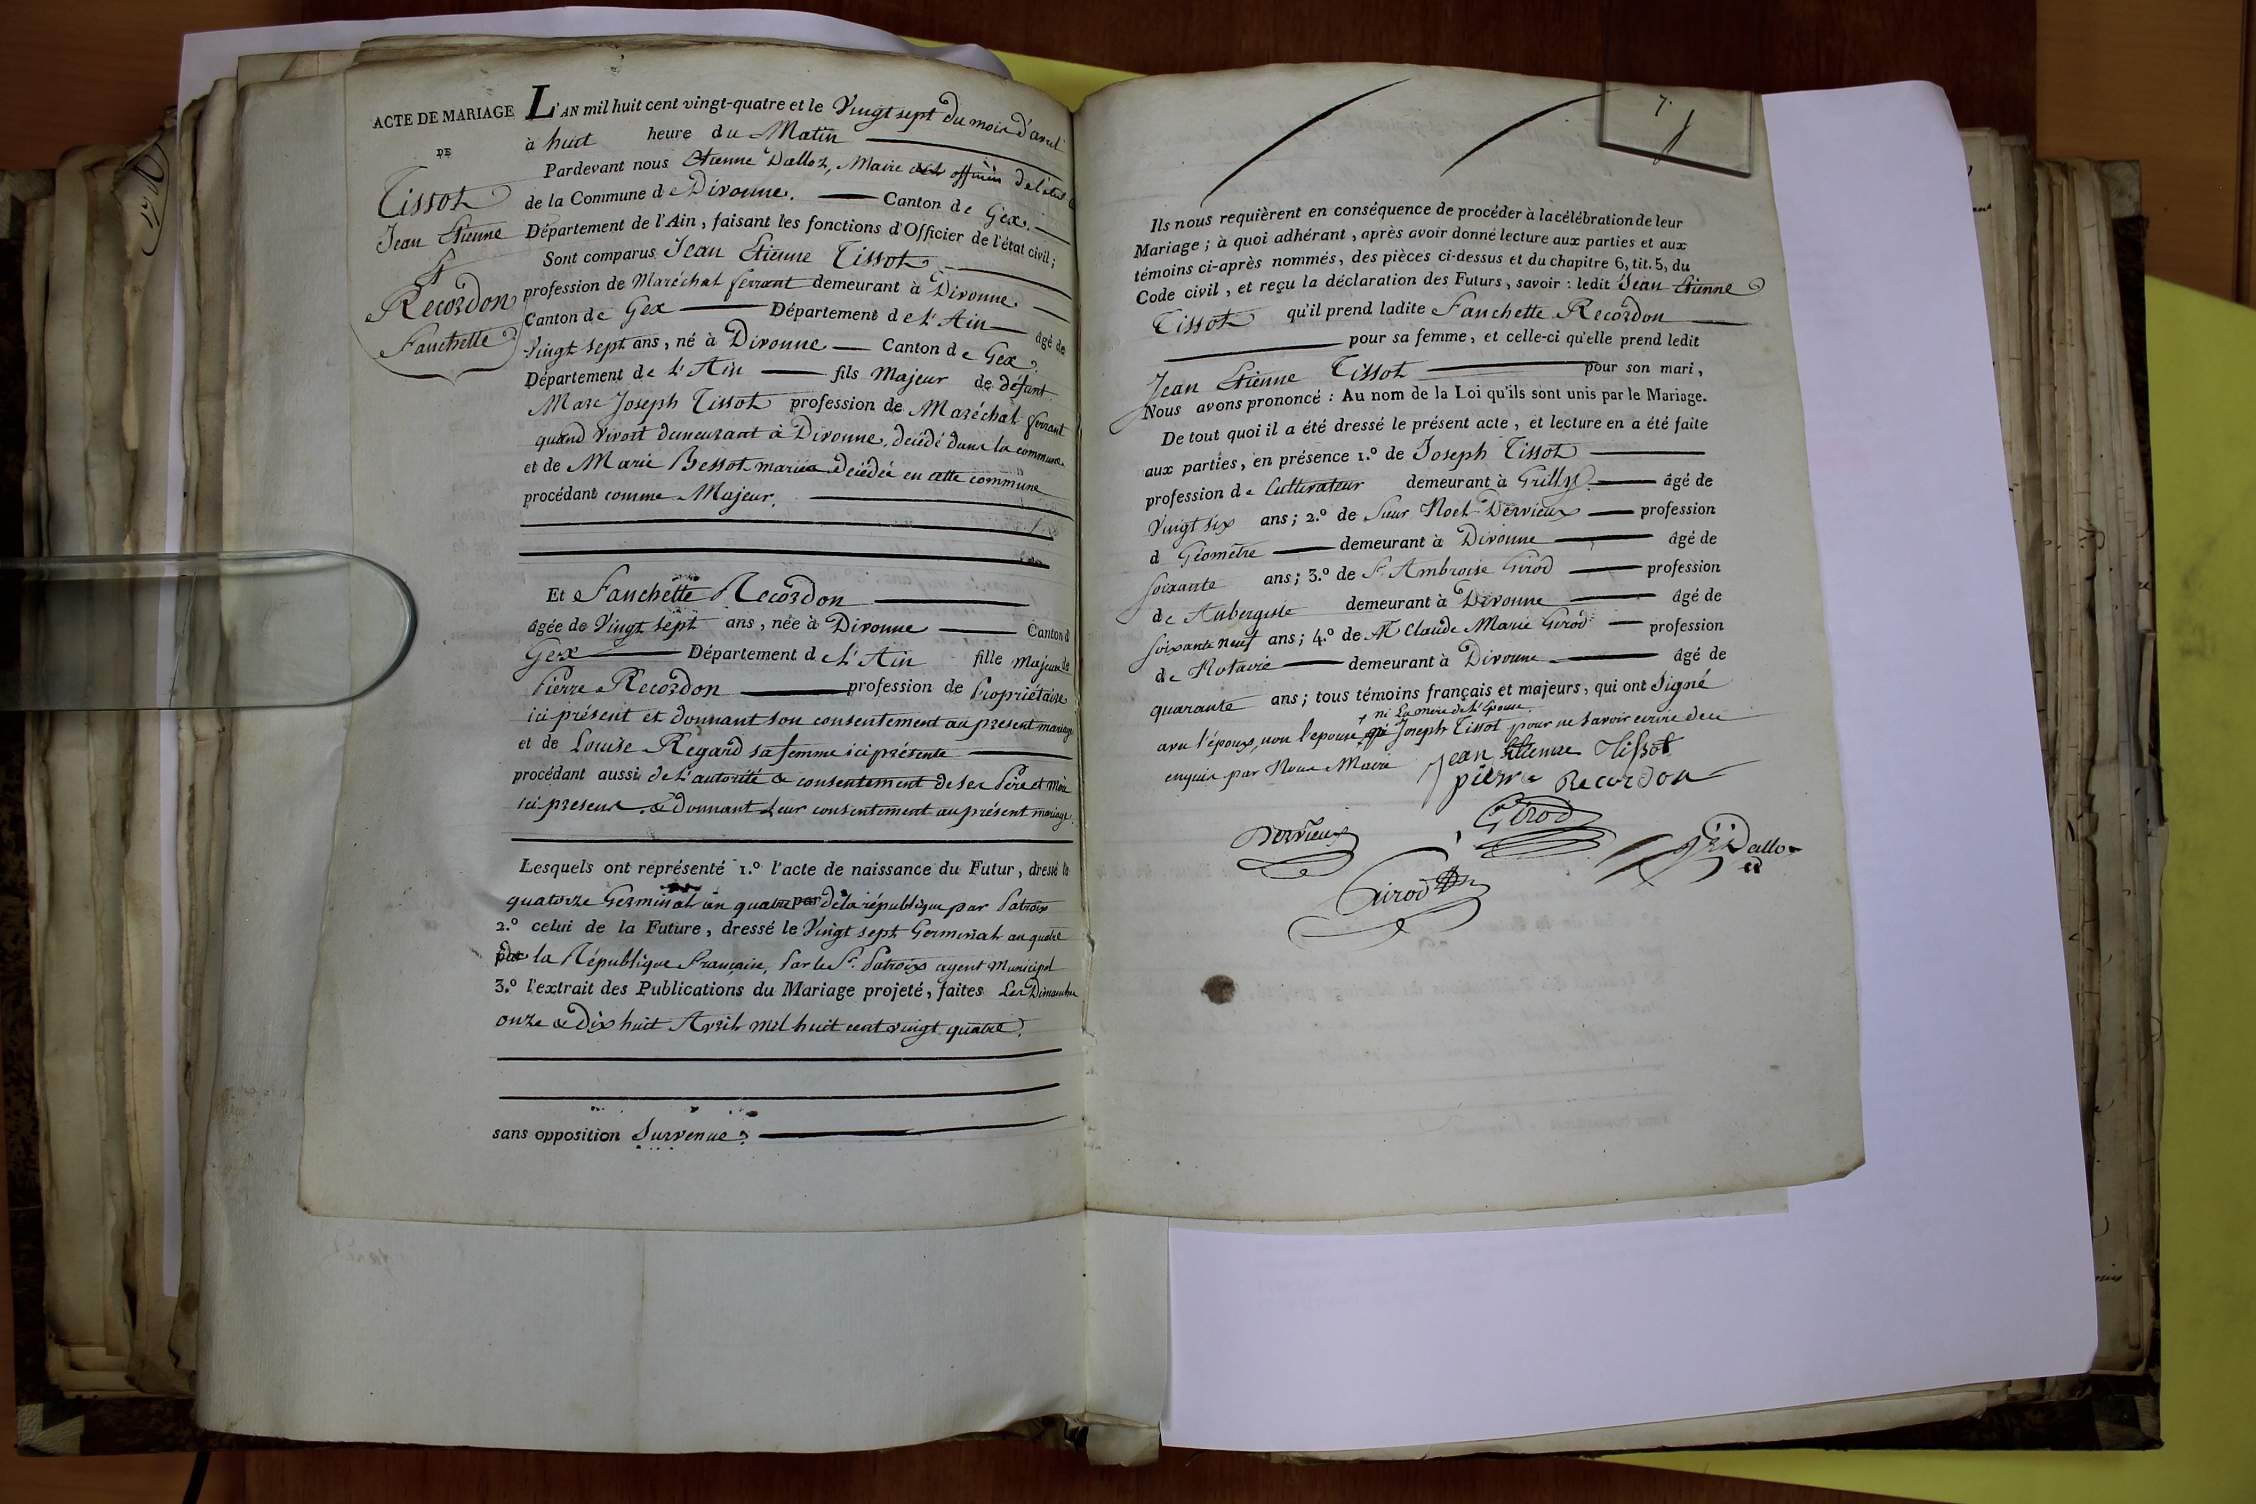 ACTE DE MARIAGE
DE
Tissot
Jean Etienne
&
Recordon
Fanchette
L'AN mil huit cent vingt-quatre et le Vingt sept du mois d'avril
à huit heure du Matin
Pardevant nous Etienne Dalloz, Maire officier de l'état
de la Commune de Divonne. Canton de Gex.
Département de l'Ain, faisant les fonctions d'Officier de l'état civil;
Sont comparus Jean Etienne Tissot
profession de Maréchal ferrant demeurant à Divonne
Canton de Gex Département de L'Ain âgé de
Vingt sept ans, né à Divonne Canton de Gex
Département de L'Ain fils Majeur de défunt
Marc Joseph Tissot profession de Maréchal ferrant
quand vivoit demeurant à Divonne, décédé dans la commune
et de Marie Bessot mariée décédée en cette commune
procédant comme Majeur.
Et Fanchette Recordon
âgée de Vingt sept ans, née à Divonne Canton d
Gex Département d L'Ain fille majeure de
Pierre Recordon profession de Propriétaire
ici présent et donnant son consentement au present mariage
et de Louise Regard sa femme ici présente
procédant aussi de L'autorité & consentement de ses Père et Mère
ici presens & donnant Leur consentement au présent mariage.
Lesquels ont représenté 1.º l'acte de naissance du Futur, dressé le
quatorze Germinal an quatre de la république par Patroix
2.º celui de la Future, dressé le Vingt sept Germinal an quatre
la République française, Par le Sr. Patroix agent Municipal
3.º l'extrait des Publications du Mariage projeté, faites Les Dimanches
onze & Dix huit Avril mil huit cent vingt quatre.
sans opposition Survenue.
7.
Ils nous requièrent en conséquence de procéder à la célébration de leur
Mariage; à quoi adhérant, après avoir donné lecture aux parties et aux
témoins ci-après nommés, des pièces ci-dessus et du chapitre 6, tit. 5, du
Code civil, et reçu la déclaration des Futurs, savoir: ledit Jean Etienne
Tissot qu'il prend ladite Fanchette Recordon
pour sa femme, et celle-ci qu'elle prend ledit
Jean Etienne Tissot pour son mari,
Nous avons prononcé: Au nom de la Loi qu'ils sont unis par le Mariage.
De tout quoi il a été dressé le présent acte, et lecture en a été faite
aux parties, en présence 1.º de Joseph Tissot
profession de Cultivateur demeurant à Grilly. âgé de
Vingt six ans; 2.º de Sieur Noel Dervieux profession
d Géomètre demeurant à Divonne âgé de
soixante ans; 3.º de Sr. Ambroise Girod profession
de Aubergiste demeurant à Divonne âgé de
soixante neuf ans; 4.º de Mr Claude Marie Girod profession
de Notaire demeurant à Divonne âgé de
quarante ans; tous témoins français et majeurs, qui ont Signé
+ ni La mere de L'Epouse
avec l'époux, non l'epouse, Joseph Tissot pour ne savoir ecrire de ce
enquis par Nous Maire
Jean Etienne Tissot
pierre Recordon
Dervieux
Girod
Dalloz
Girod